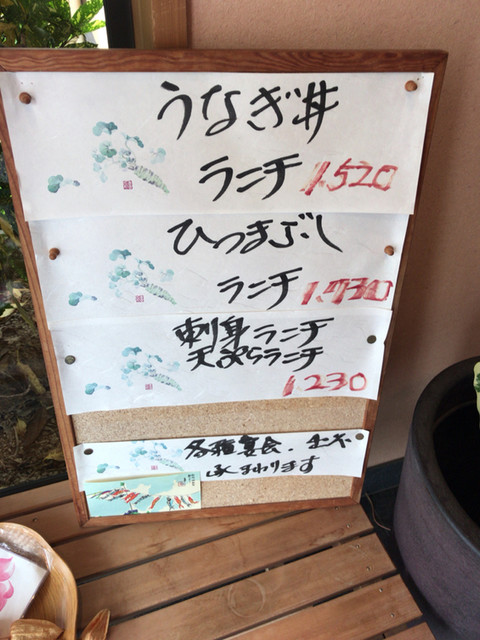 うなぎ丼
ランチ 1.520
ひつまぶし
ランチ 1.730
刺身ランチ
天ぷらランチ
1.230
各種宴会、仕出
承まわります